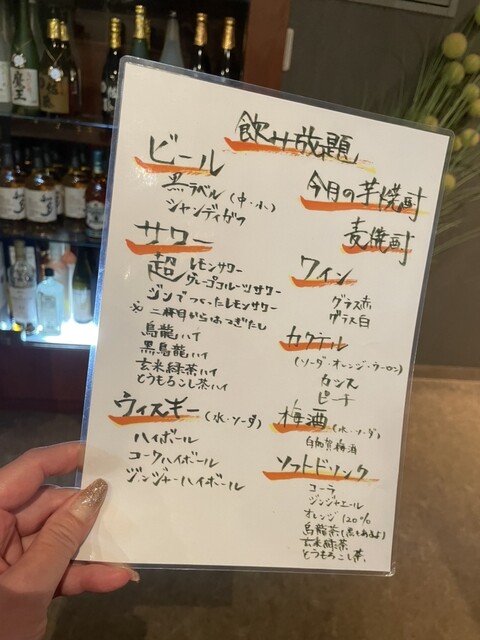 飲み放題
ビール
黒ラベル(中・小)
シャンディガフ
サワー
超 レモンサワー
グレープフルーツサワー
ジンでつくったレモンサワー
※ 二杯目からはつぎたし
烏龍ハイ
黒烏龍ハイ
玄米緑茶ハイ
とうもろこし茶ハイ
ウィスキー(水・ソーダ)
ハイボール
コークハイボール
ジンジャーハイボール
今月の芋焼酎
麦焼酎
ワイン
グラス赤
グラス白
カクテル
(ソーダ・オレンジ・ウーロン)
カシス
ピーチ
梅酒(水・ソーダ)
白加賀梅酒
ソフトドリンク
コーラ
ジンジャエール
オレンジ 120%
烏龍茶(黒もあるよ)
玄米緑茶
とうもろこし茶
魔王
佐藤